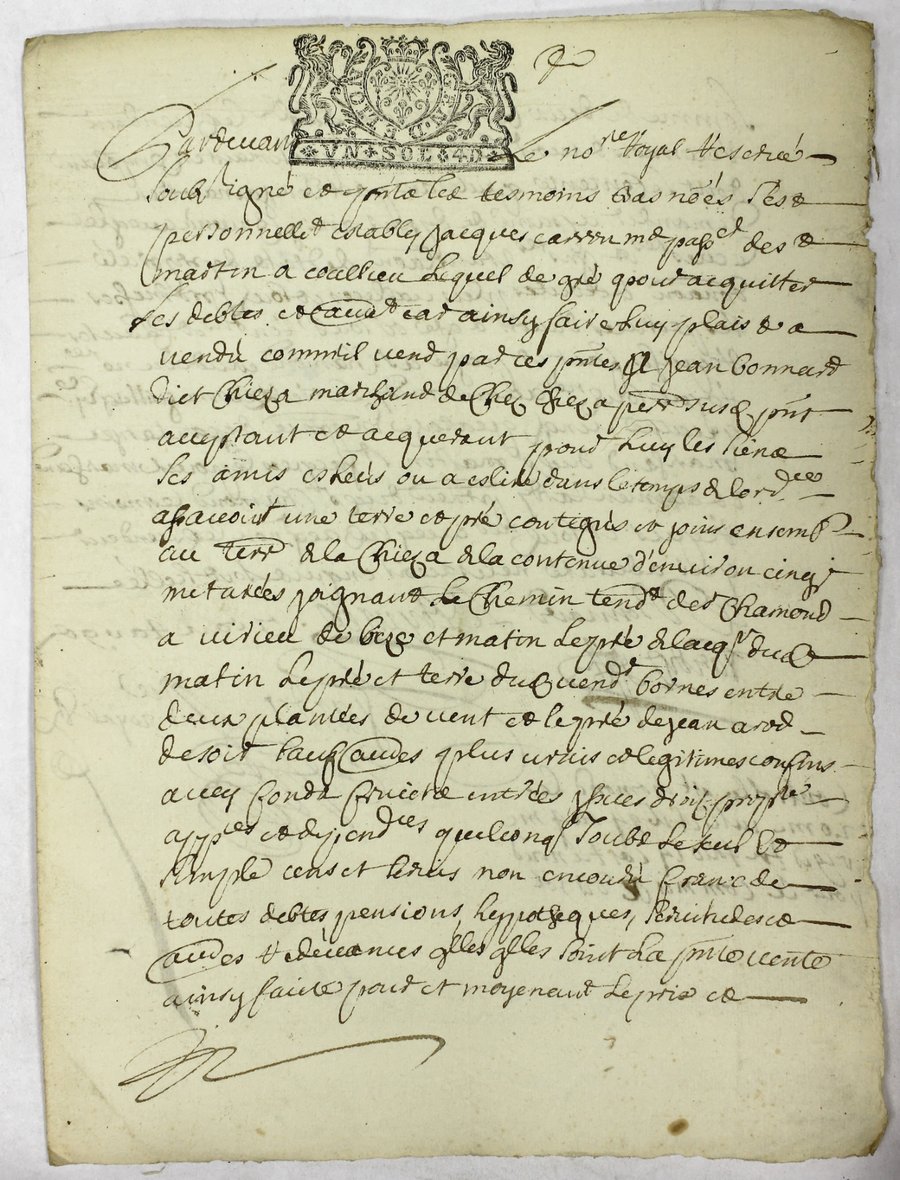 GEN.D.LION
VN SOL 4D
Pardevant Le no.re Royal Reservé
soubsigné et pnts les tesmoins bas nōés s'est
personnellet estably Jacques carrou md pass.r de St
martin a coallieu Lequel de gré q pour acquitter
ses debtes et aud.t car ainsy faire Luy plais et a
vendu comm'il vend par ces pntes A Jean bonnard
dict Chieza marchand de Chez Chieza per susd pnt
acceptant et acquerant pour Luy les siens
ses amis esleus ou a eslire dans le temps de l'ord.ce
assavoir une terre et pré contigus et joins ensemb
au terr.e de la Chieza de la contenue d'environ cinq
metarées joignant Le Chemin tend.t de St Chamond
a virieu de bize et matin Le pré de l'acq.r dud
matin Le pré et terre dud vend.r bornes entre
deux plantées de vent et le pré de Jean arod
de soir sauf aud.es q plus vrais et legitimes confins
avec fonds fruicts entrées yssues droits propr.te
app.ces et depend.ces quelconq soubs Le seul et
simple cens et servis non encouru franc de
toutes debtes pensions hyppotheques, servitudes et
aud.es redevances qlles qlles soint La pnte vente
ainsy faite pour et moyenant Le prix et